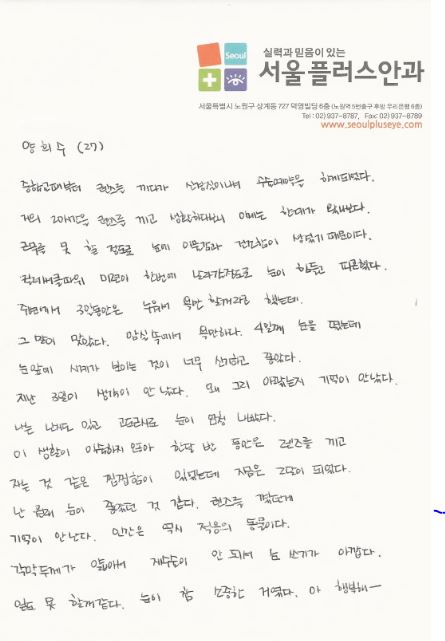 Seoul
실력과 믿음이 있는
서울플러스안과
서울특별시 노원구 상계동 727 덕영빌딩 6층 (노원역 5번출구 후방 우리은행 6층)
Tel : 02) 937-8787, Fax: 02) 937-8789
www.seoulpluseye.com
양희수 (27)
중학교때부터 렌즈를 끼다가 신경질이나서 수술예약을 하게되었다.
거의 20시간을 렌즈를 끼고 생활하다보니 이제는 한계가 왔나보다.
근무를 못 할 정도로 눈에 이물감과 건조함이 생겼기 때문이다.
미련이 한번에 날라갈정도로 눈이 아프고 따끔했다.
주변에서 3일동안은 누워서 욕만 할거라고 했는데.
그 말이 맞았다. 암실 속에서 욕만하다. 4일째 눈을 떴는데
눈앞에 시계가 보이는 것이 너무 신기하고 좋았다.
지난 3일이 생각이 안 났다. 왜 그리 아팠는지 기억이 안났다.
나는 난시도 있고 고도근시로 눈이 엄청 나빴다.
이 생활이 익숙하지 않아 한달 반 동안은 렌즈를 끼고
자는 것 같은 찜찜함이 있었는데 지금은 2달이 되었다.
난 원래 눈이 좋았던 것 같다. 렌즈를 꼈던게
기억이 안난다. 인간은 역시 적응의 동물이다.
각막두께가 얇아서 재수술이 안 되서 눈 쓰기가 아깝다.
일도 못 할거같다. 눈이 참 소중한 거였다. 아 행복해~